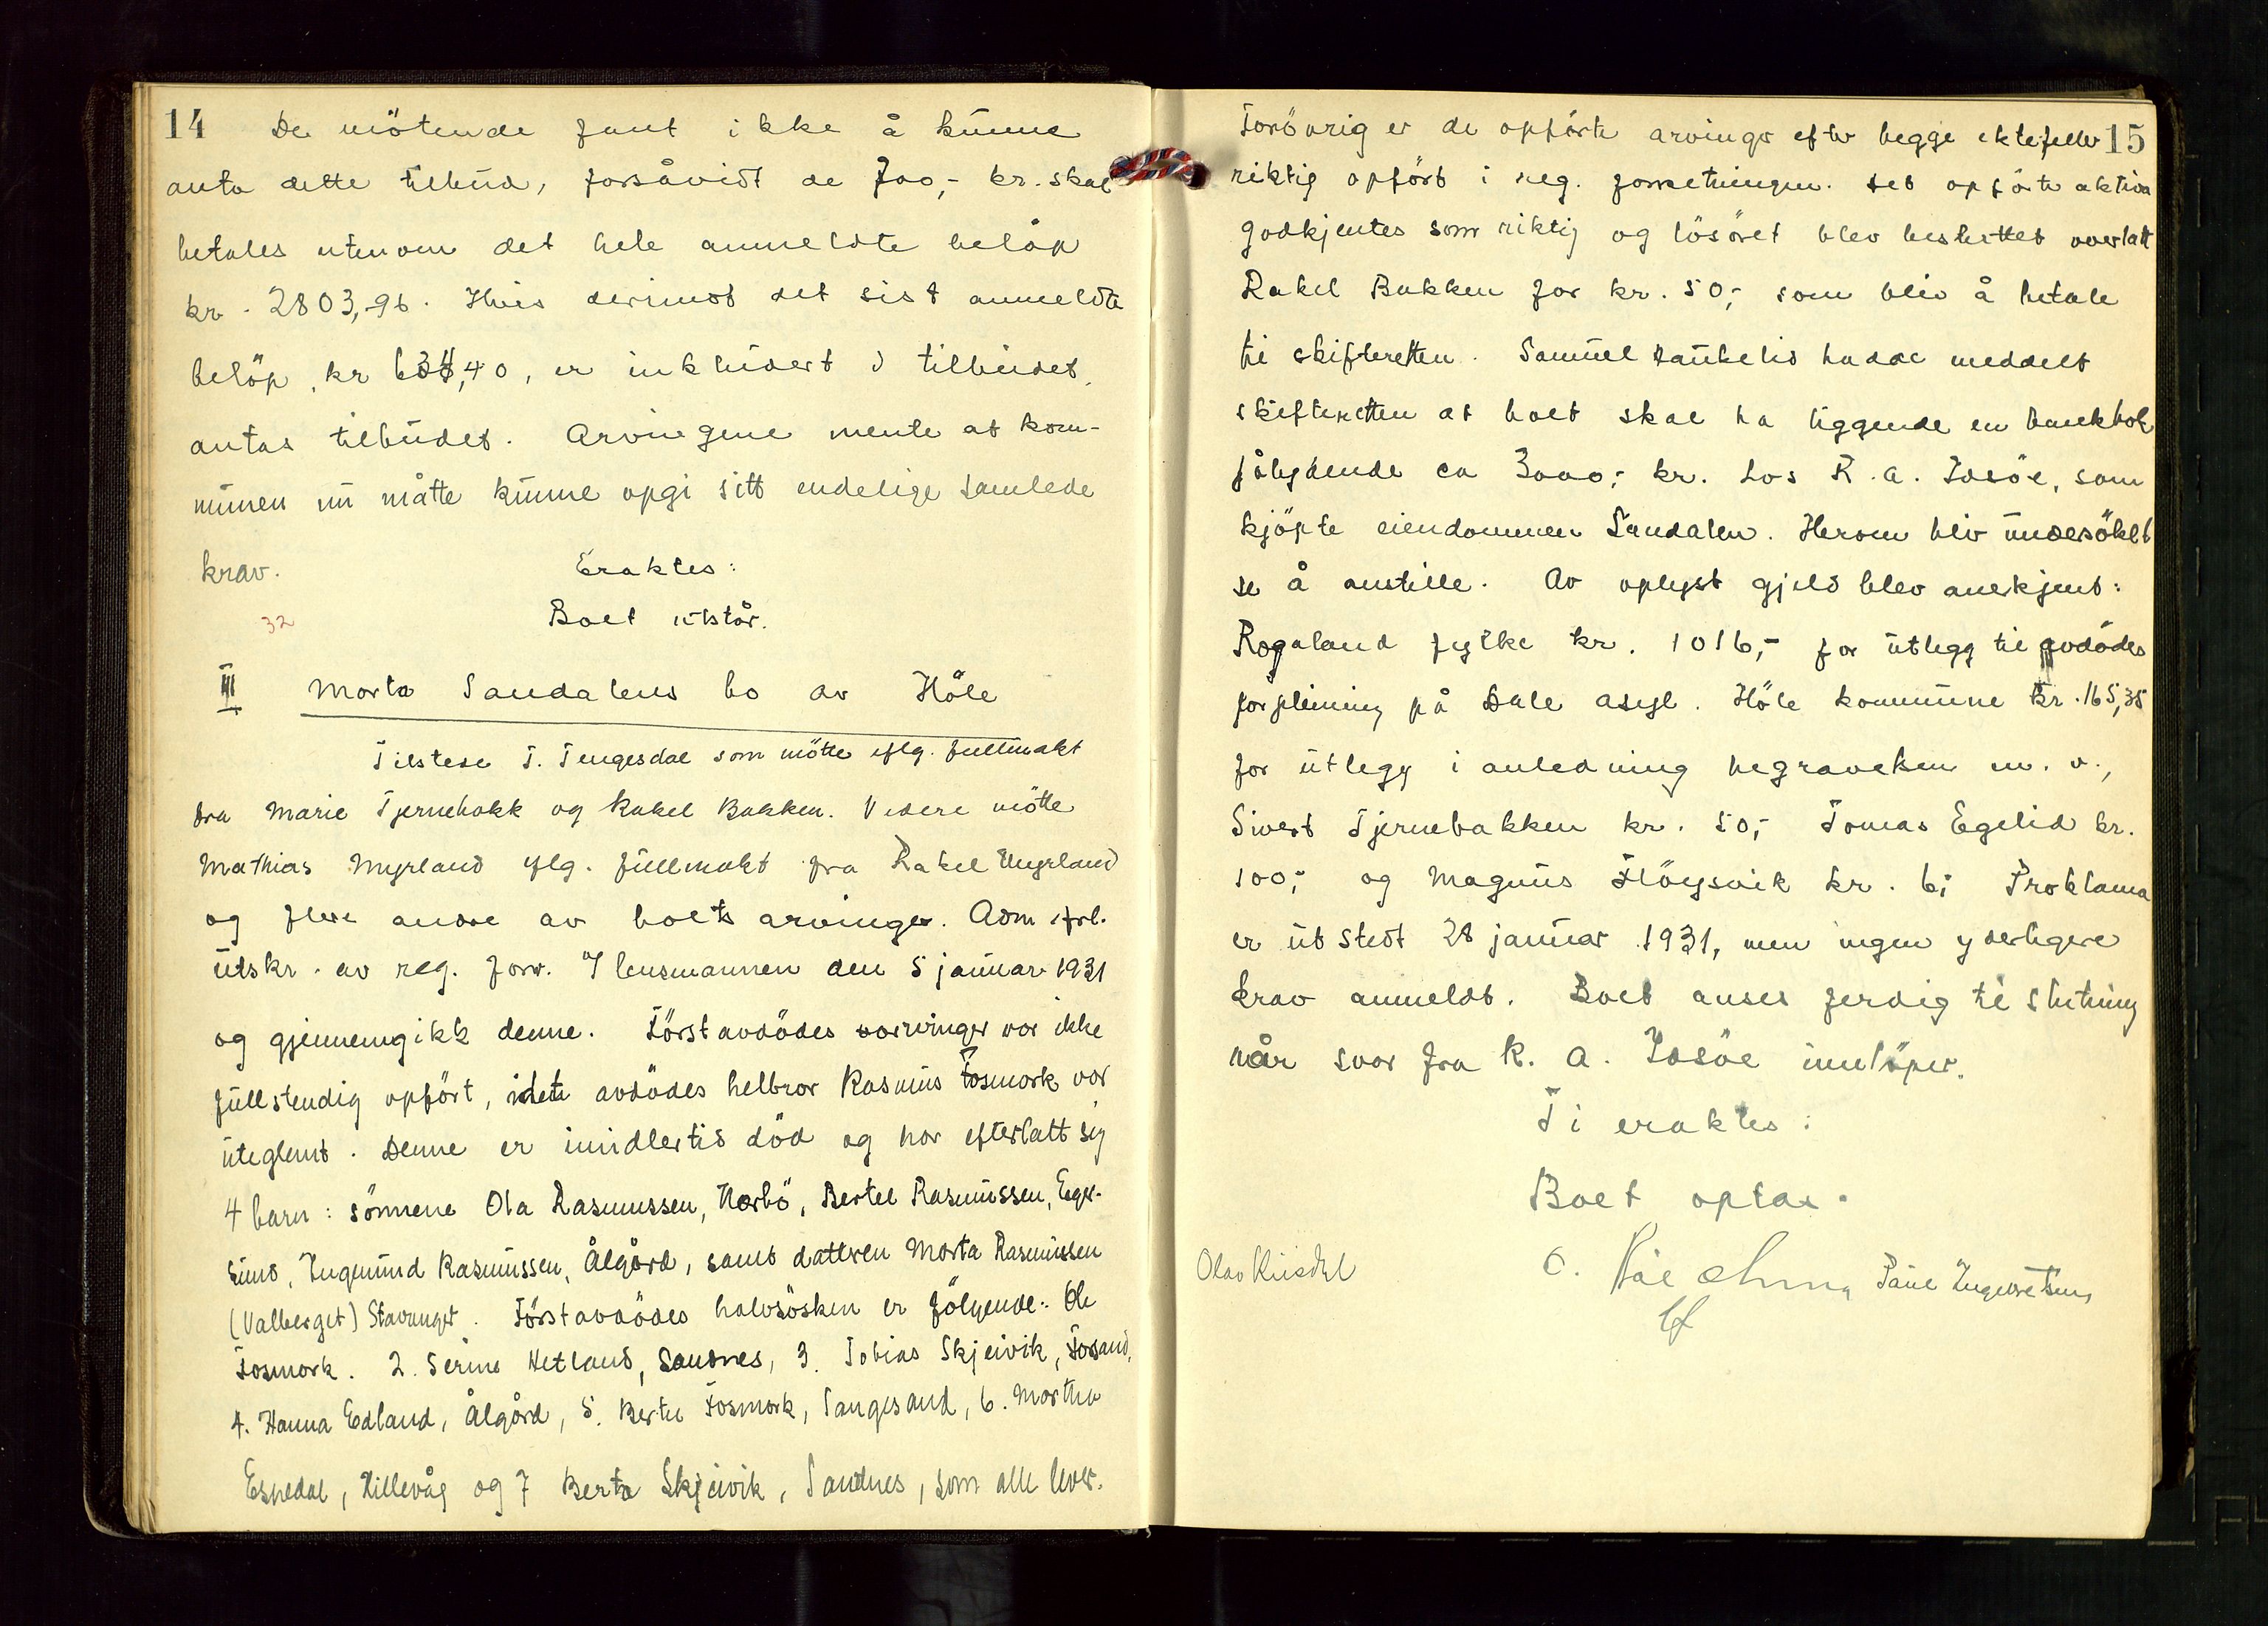 14
De mötende fant ikke å kunne
anta dette tilbud, forsåvidt de 700,- kr. skal
betales utenom det hele anmeldte belöp
kr. 2803,96. Hvis derimot det sist anmeldte
belöp, kr 634,40, er inkludert i tilbudet,
antas tilbudet. Arvingene mente at kom-
munen nu måtte kunne opgi sitt endelige samlede
krav.
Eraktes:
32
Boet utstår.
III Marta Sandalens bo av Höle
Tilstede T. Tengesdal som mötte eflg. fullmakt
fra Marie Tjernebakk og Rakel Bakken. Videre mötte
Mathias Myrland eflg. fullmakt fra Rakel Myrland
og flere andre av boets arvinger. Adm. frl.
utskr. av reg. forr. v/ lensmannen den 5 januar 1931
og gjennemgikk denne. Först avdödes arvinger var ikke
fullstendig opfört, idet avdödes helbror Rasmus Fosmork var
uteglemt. Denne er imidlertid död og har efterlatt sig
4 barn: sönnene Ola Rasmussen, Nærbö, Bertel Rasmussen, Eger-
sund, Ingmund Rasmussen, Ålgård, samt datteren Marta Rasmussen
(Valberget) Stavanger. Först avdödes halvsösken er fölgende: Ole
Fosmork. 2. Serine Hetland, Sandnes, 3. Tobias Skjeivik, Fossand,
4. Hanna Edland, Ålgård, 5. Berte Fosmork, Sangesand, 6. Martha
Espedal, Hillevåg og 7 Berta Skjeivik, Sandnes, som alle lever.
15
Forövrig er de opförte arvinger efter begge ektefeller
riktig opfört i reg. forretningen. Det opförte aktiva
godkjentes som riktig og lösöret blev besluttet overlatt
Rakel Bakken for kr. 50,- som blir å betale
til skifteretten. Samuel Haukelid hadde meddelt
skifteretten at boet skal ha liggende en bankbok
pålydende ca 3000,- kr. hos K. A. Idsöe, som
kjöpte eiendommen Sandalen. Herom blir undersökel
se å anstille. Av oplyst gjeld blev anerkjent:
Rogaland fylke kr. 1016,- for utlegg til avdödes
forpleining på Dale asyl. Höle kommune kr. 165,35
for utlegg i anledning begravelsen m. v.,
Sivert Tjernebakken kr. 50,- Tomas Egelid kr.
100,- og Magnus Flöysvik kr. 6,- Proklama
er utstedt 28 januar 1931, men ingen yderligere
krav anmeldt. Boet anses ferdig til slutning
når svar fra K. A. Idsöe innlöper.
Ti eraktes:
Boet optas.
Olav Riisdal